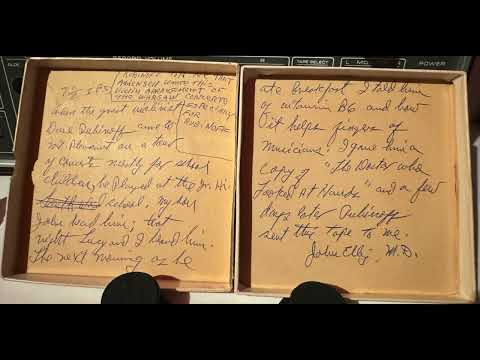 RECORD VOLUME
TAPE SELECT
POWER
RUBINOFF
ADDINSELL WROTE THIS
VIOLIN ARRANGEMENT OF
THE WARSAW CONCERTO
ESPECIALLY
FOR
RUBINOFF
when the great violinist
Dave Rubinoff came to
Mt Pleasant on a tour
of concerts mostly for school
children, he played at the Jr. Hi.
school. My son
John heard him; that
night Lucy and I heard him.
The next morning as he
ate breakfast I told him
of vitamin B6 and how
it helps fingers of
musicians: I gave him a
copy of "The Doctor who
Looked At Hands" and a few
days later Rubinoff
sent this tape to me.
John Ellis, M.D.